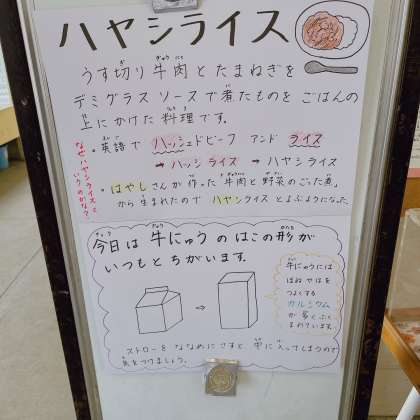 ハヤシライス
うす切り牛肉とたまねぎを
デミグラスソースで煮たものをごはんの
上にかけた料理です。
なぜハヤシライスというのかな?
・英語で ハッシュドビーフ アンド ライス
→ハッシライス →ハヤシライス
・はやしさんが作った「牛肉と野菜のごった煮」
から生まれたのでハヤシライスとよぶようになった。
今日は牛にゅうのはこの形が
いつもとちがいます。
→
牛にゅうには
ほねやはを
つよくする
カルシウム
が多くふく
まれています。
ストローをななめにさすと中に入ってしまうので
気をつけましょう。